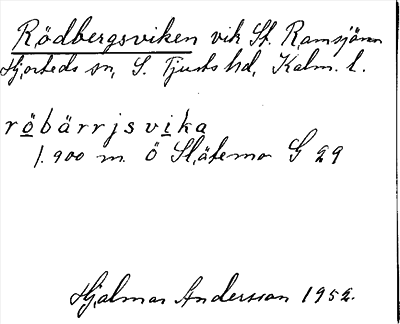 Rödbergsviken vik St. Ramsjön
Hjorteds sn, S. Tjusts hd, Kalm. l.
röbärrjsvika
1.900 m Ö Slätemo G 29
Hjalmar Andersson 1952.